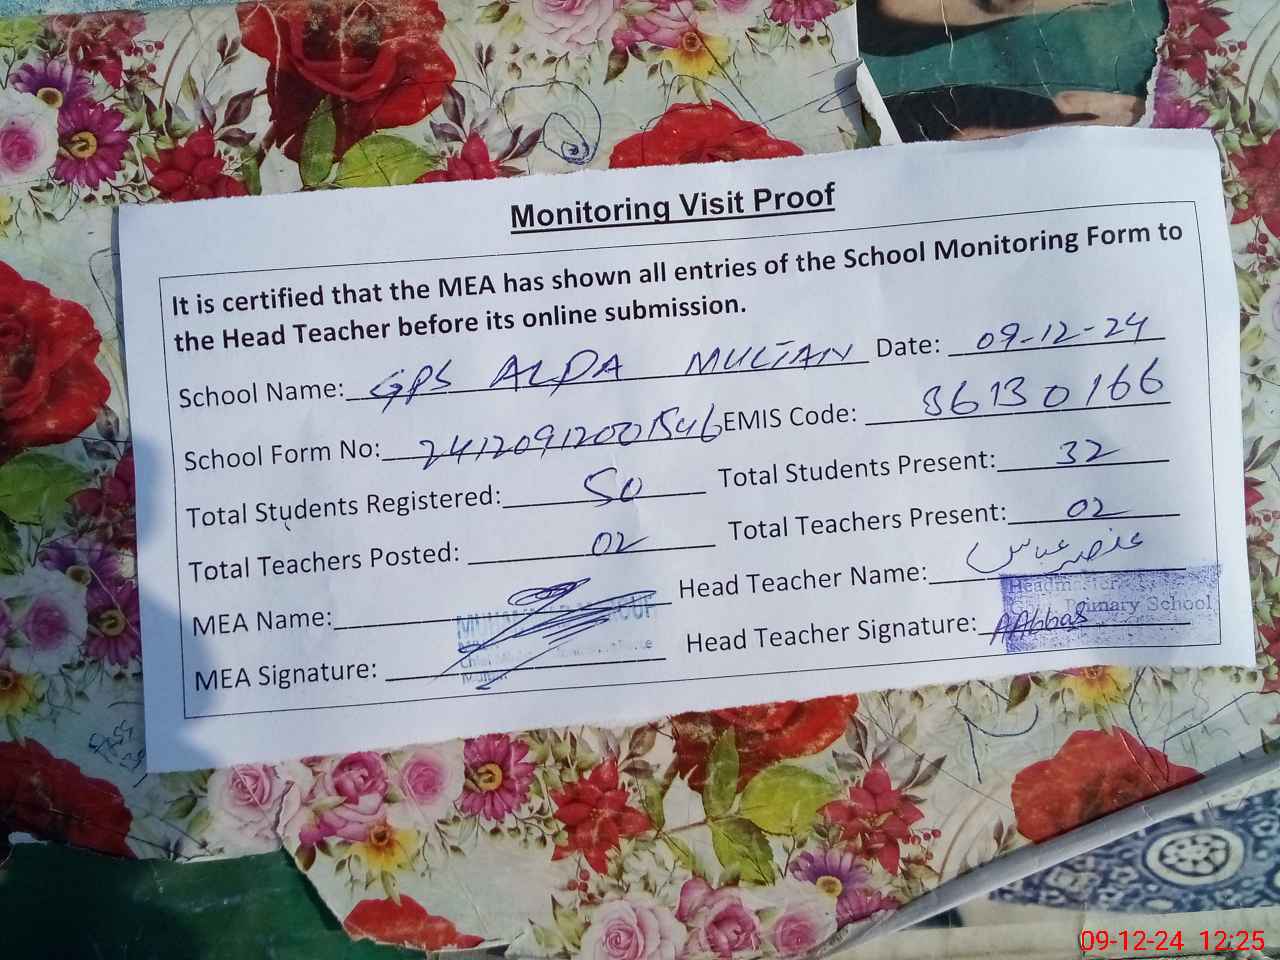 Monitoring Visit Proof
It is certified that the MEA has shown all entries of the School Monitoring Form to
the Head Teacher before its online submission.
School Name: GPS ALPA MULTAN Date: 09-12-24
School Form No: 24120912001546 EMIS Code: 36130166
Total Students Registered: 50 Total Students Present: 32
Total Teachers Posted: 02 Total Teachers Present: 02
MEA Name: Head Teacher Name: عنصر عباس
MEA Signature: Head Teacher Signature: AAbbas
Primary School
09-12-24 12:25